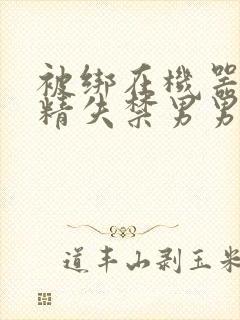 被绑在機器
精失禁男男
道丰山剥玉米